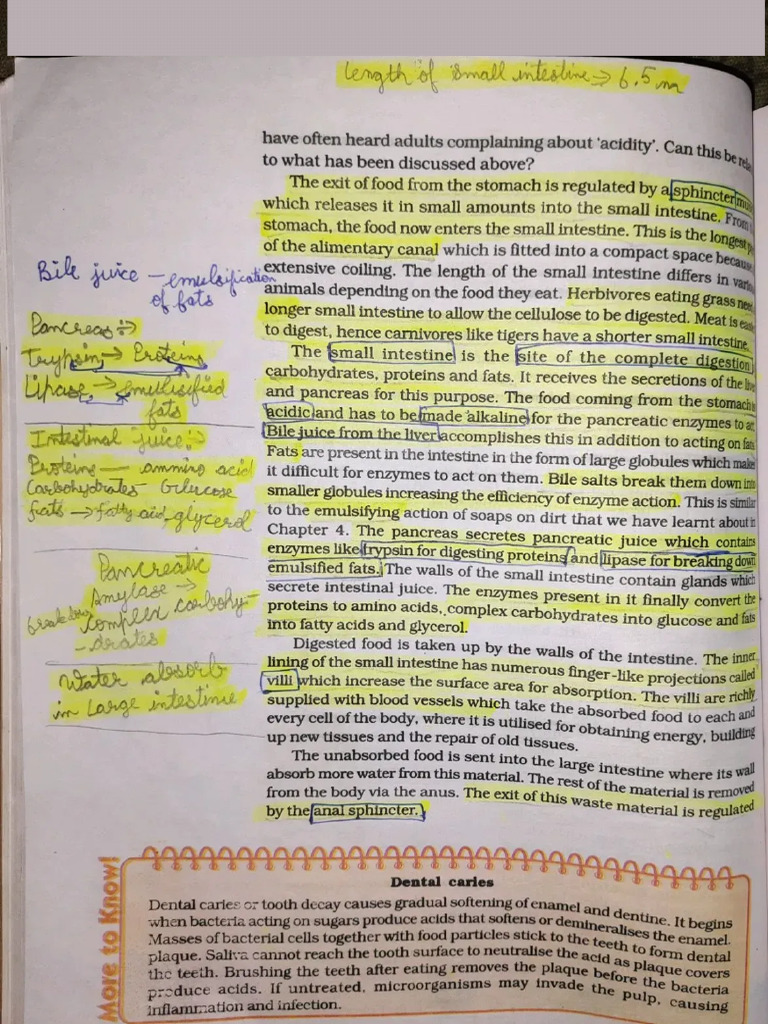 length of small intestine → 6.5 m
have often heard adults complaining about 'acidity'. Can this be
to what has been discussed above?
The exit of food from the stomach is regulated by a sphincter
which releases it in small amounts into the small intestine. From
stomach, the food now enters the small intestine. This is the longest
of the alimentary canal which is fitted into a compact space because
extensive coiling. The length of the small intestine differs in
animals depending on the food they eat. Herbivores eating grass
longer small intestine to allow the cellulose to be digested. Meat is
to digest, hence carnivores like tigers have a shorter small intestine.
The small intestine is the site of the complete digestion
carbohydrates, proteins and fats. It receives the secretions of the
and pancreas for this purpose. The food coming from the stomach is
acidic and has to be made alkaline for the pancreatic enzymes to
Bile juice from the liver accomplishes this in addition to acting on
Fats are present in the intestine in the form of large globules which
it difficult for enzymes to act on them. Bile salts break them down into
smaller globules increasing the efficiency of enzyme action. This is similar
to the emulsifying action of soaps on dirt that we have learnt about in
Chapter 4. The pancreas secretes pancreatic juice which contains
enzymes like trypsin for digesting proteins and lipase for breaking down
emulsified fats. The walls of the small intestine contain glands which
secrete intestinal juice. The enzymes present in it finally convert the
proteins to amino acids, complex carbohydrates into glucose and fats
into fatty acids and glycerol.
Digested food is taken up by the walls of the intestine. The inner
lining of the small intestine has numerous finger-like projections called
villi which increase the surface area for absorption. The villi are richly
supplied with blood vessels which take the absorbed food to each and
every cell of the body, where it is utilised for obtaining energy, building
up new tissues and the repair of old tissues.
The unabsorbed food is sent into the large intestine where its wall
absorb more water from this material. The rest of the material is removed
from the body via the anus. The exit of this waste material is regulated
by the anal sphincter.
Bile juice — emulsification
of fats
Pancreas →
Trypsin → Proteins
Lipase → emulsified
fats
Intestinal juice →
Proteins — ammino acid
Carbohydrates Glucose
fats → fatty acid, glycerol
Pancreatic
amylase →
breakdown complex carbohy-
-drates
Water absorb
in large intestine
More to Know!
Dental caries
Dental caries or tooth decay causes gradual softening of enamel and dentine. It begins
when bacteria acting on sugars produce acids that softens or demineralises the enamel.
Masses of bacterial cells together with food particles stick to the teeth to form dental
plaque. Saliva cannot reach the tooth surface to neutralise the acid as plaque covers
the teeth. Brushing the teeth after eating removes the plaque before the bacteria
produce acids. If untreated, microorganisms may invade the pulp, causing
inflammation and infection.